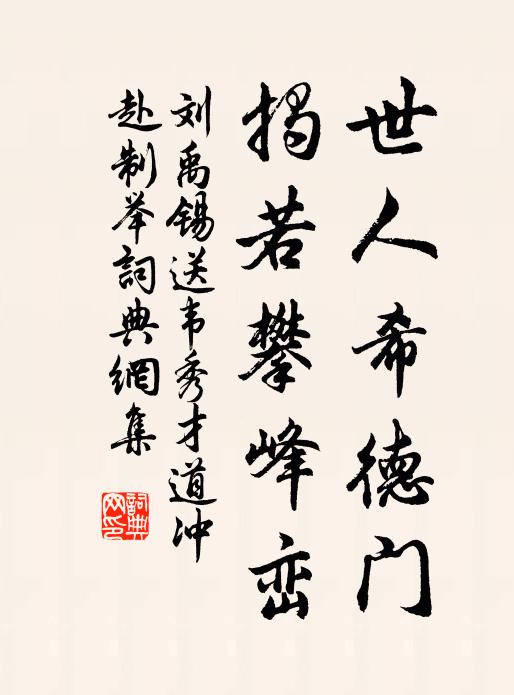 世人希德门
揭若攀峰峦
刘禹锡送韦秀才道冲
赴制举詞典網集
詞典
网印